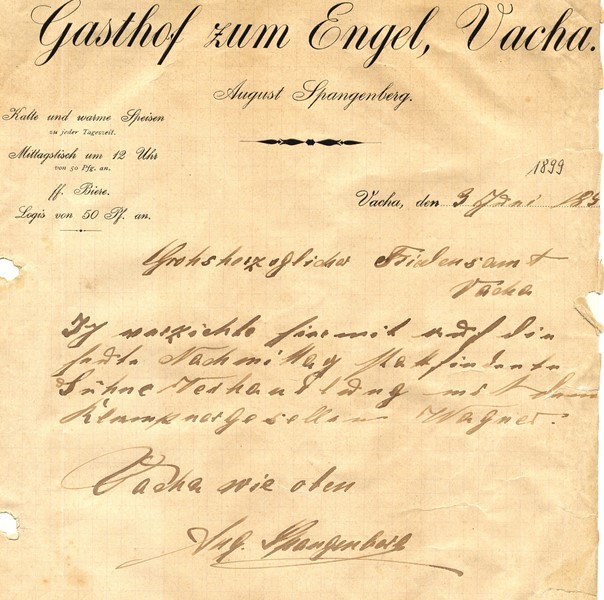 Gasthof zum Engel, Vacha.
August Spangenberg.
Kalte und warme Speisen
zu jeder Tageszeit.
Mittagstisch um 12 Uhr
von 50 Pfg. an.
ff. Biere.
Logis von 50 Pf. an.
1899
Vacha, den 3 189
Grohsherzoglicher Friedensamt
Vacha
Ich verzichte hiermit auf die
heute Nachmittag stattfindente
Sühne Verhandlung mit dem
Klempnergesellen Wagner.
Vacha wie oben
Aug. Spangenberg